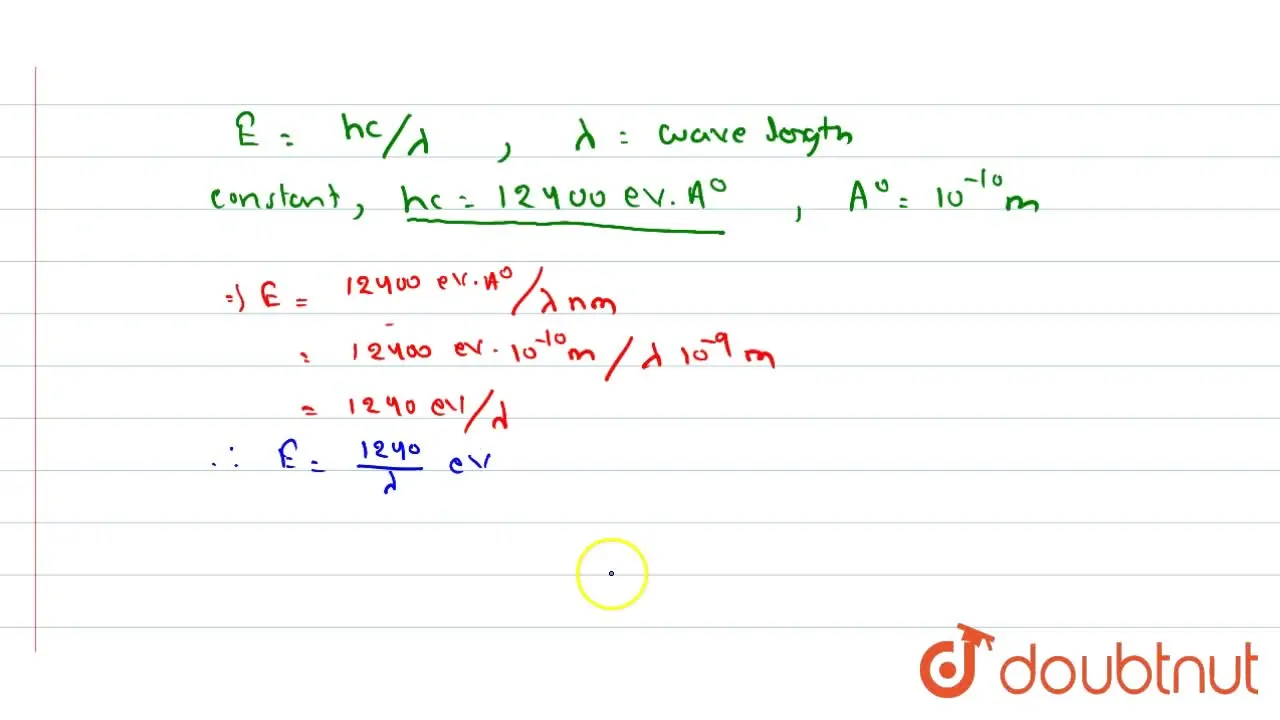 E = hc/λ , λ = wave length
constant, hc = 12400 ev. A⁰ , A⁰ = 10⁻¹⁰ m
=) E = 12400 ev. A⁰/λ nm
= 12400 ev. 10⁻¹⁰ m / λ 10⁻⁹ m
= 1240 ev/λ
∴ E = 1240/λ ev
doubtnut